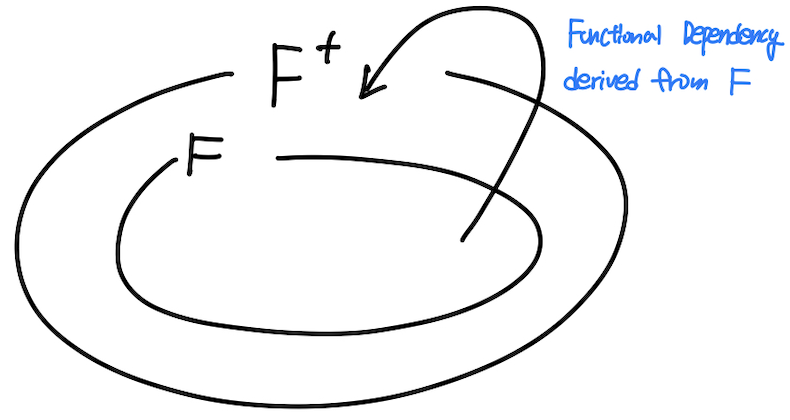 F+
F
Functional Dependency
derived from F